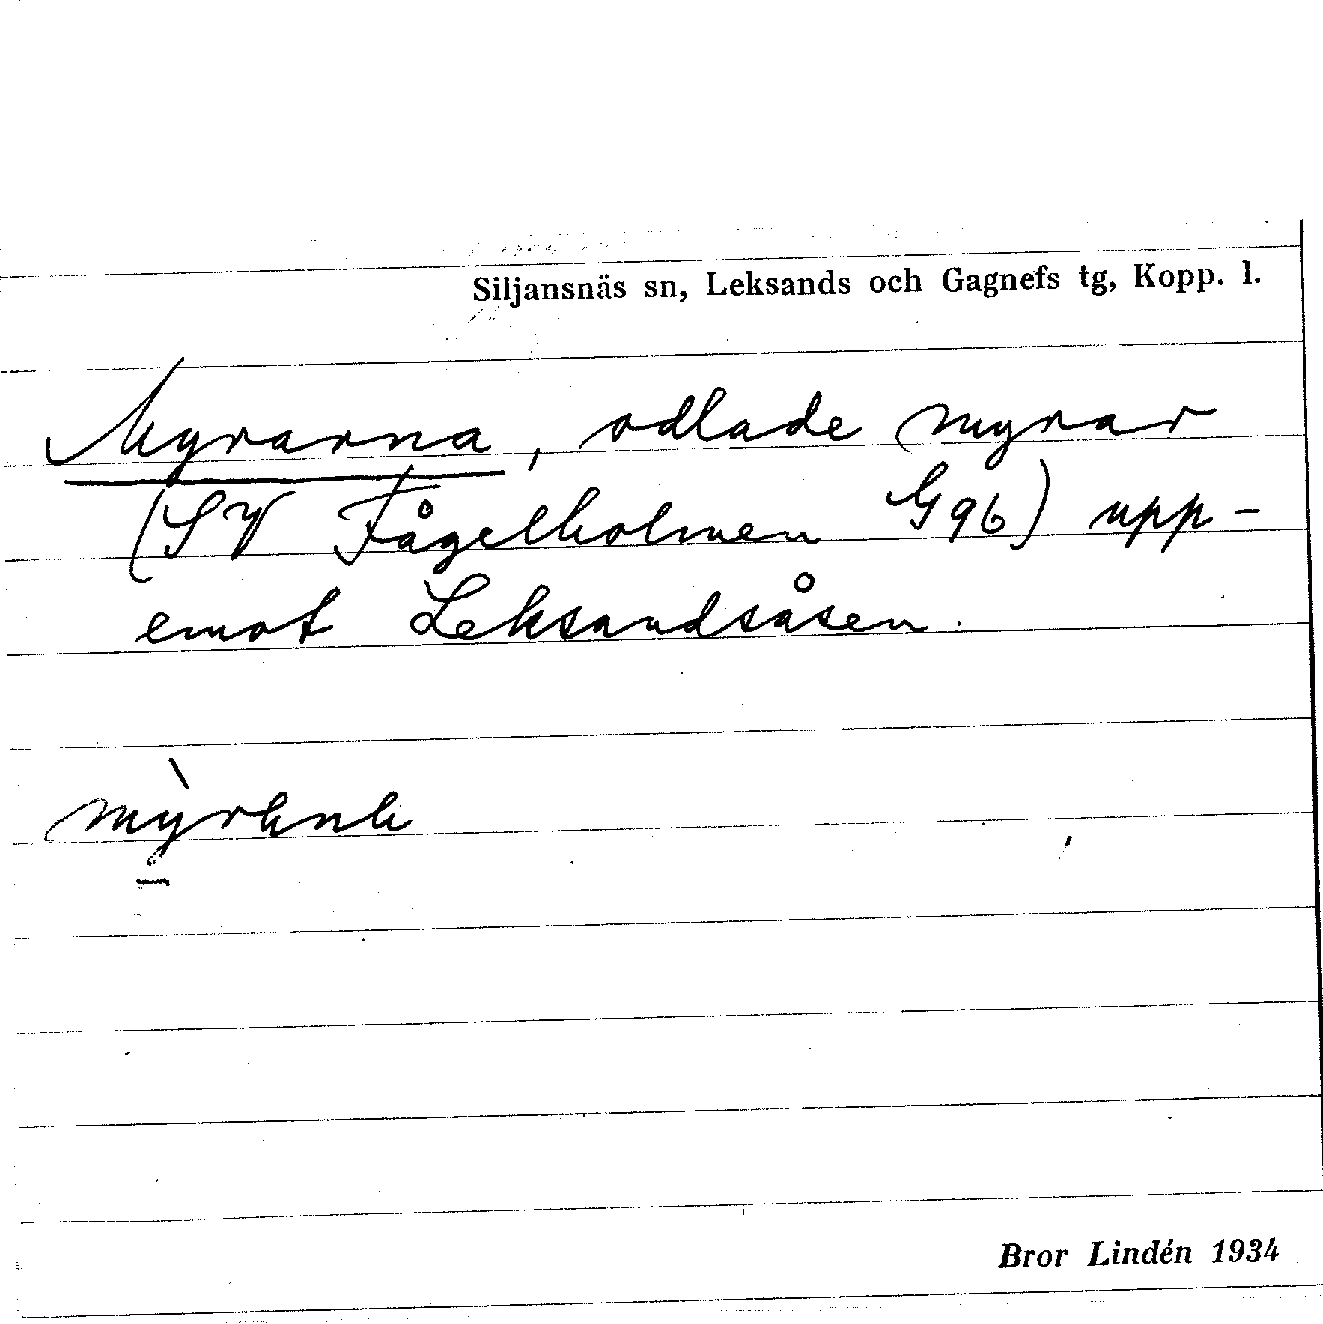 Siljansnäs sn, Leksands och Gagnefs tg, Kopp. l.
Myrarna, odlade myrar
(SV Fågelholmen G96) upp-
emot Leksandsåsen.
Bror Lindén 1934